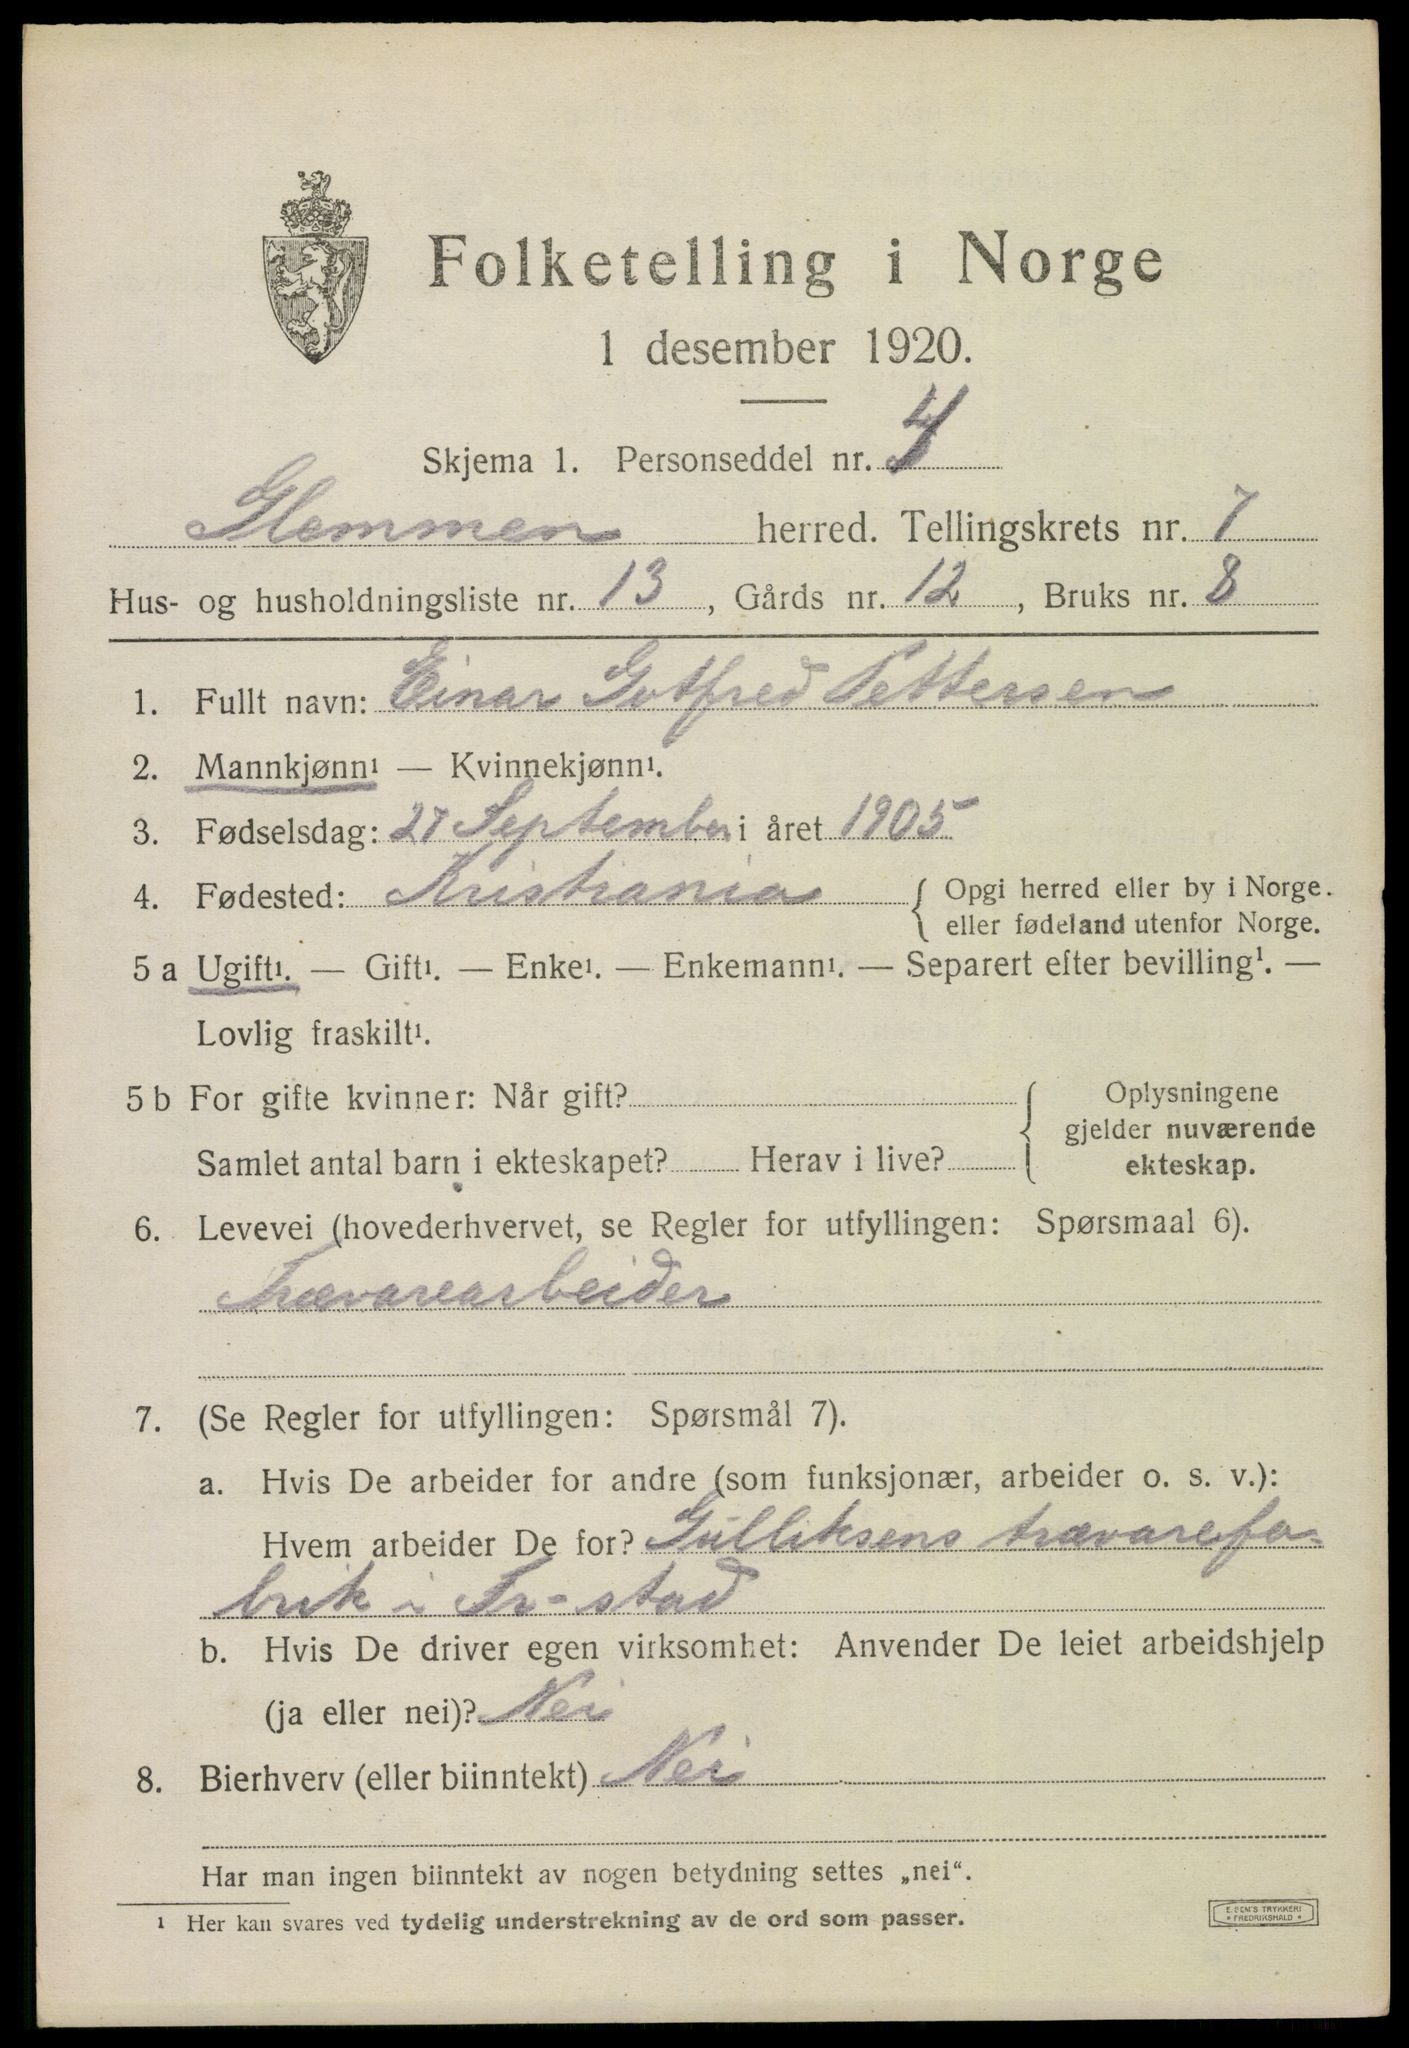 Folketelling i Norge
1 desember 1920.
Skjema 1. Personseddel nr. 4
Glemmen herred. Tellingskrets nr. 7
Hus- og husholdningsliste nr. 13, Gårds nr. 12, Bruks nr. 8
1. Fullt navn: Einar Gotfred Pettersen
2. Mannkjønn¹ — Kvinnekjønn¹.
3. Fødselsdag: 27 September i året 1905
4. Fødested: Kristiania { Opgi herred eller by i Norge.
eller fødeland utenfor Norge.
5 a Ugift¹. — Gift¹. — Enke¹. — Enkemann¹. — Separert efter bevilling¹. —
Lovlig fraskilt¹.
5 b For gifte kvinner: Når gift? { Oplysningene
gjelder nuværende
Samlet antal barn i ekteskapet? Herav i live? ekteskap.
6. Levevei (hovederhvervet, se Regler for utfyllingen: Spørsmaal 6).
Trævarearbeider
7. (Se Regler for utfyllingen: Spørsmål 7).
a. Hvis De arbeider for andre (som funksjonær, arbeider o. s. v.):
Hvem arbeider De for? Gulliksens trævarefa-
brik i Fr-stad
b. Hvis De driver egen virksomhet: Anvender De leiet arbeidshjelp
(ja eller nei)? Nei
8. Bierhverv (eller biinntekt) Nei
Har man ingen biinntekt av nogen betydning settes „nei“.
¹ Her kan svares ved tydelig understrekning av de ord som passer.
E. SEM'S TRYKKERI
* FREDRIKSHALD *